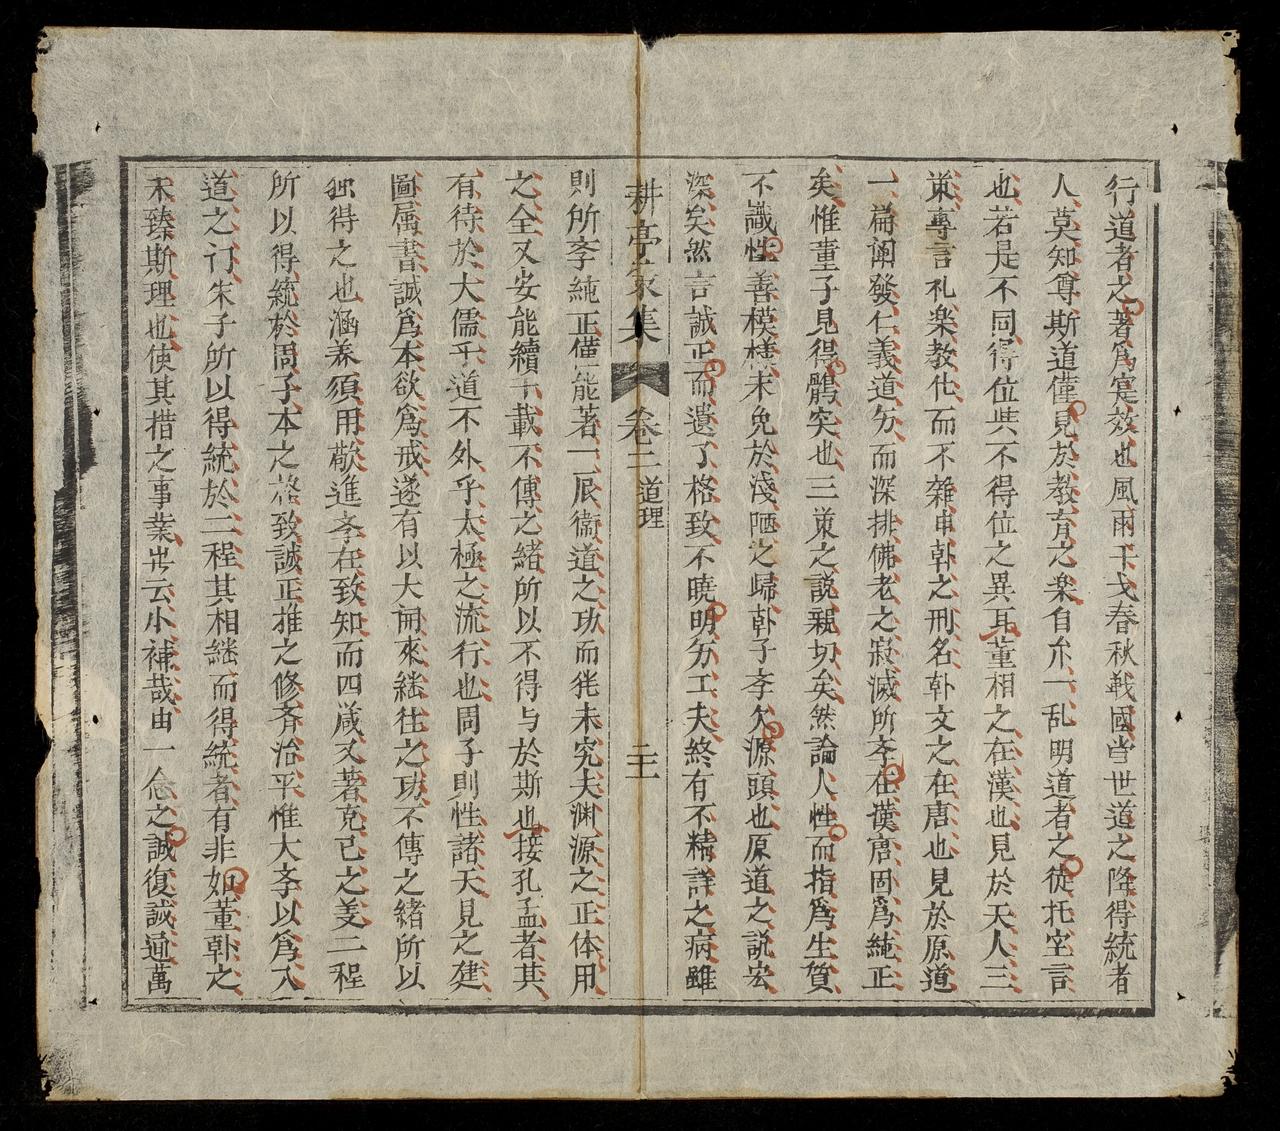 行道者之著爲寔效也風雨干戈春秋戰國皆世道之降得統者
人莫知尊斯道僅見於教育之楽自尒一乱明道者之徒托空言
也若是不同得位與不得位之異耳董相之在漢也見於天人三
策尊言礼楽教化而不雜申韩之刑名韩文之在唐也見於原道
一扁阐發仁義道穷而深排佛老之寂滅所斈在漢唐固爲純正
矣惟董子見得鶻突也三策之説親切矣然論人性而指爲生質
不識性善模様未免於淺陋之歸韩子斈欠源頭也原道之説宏
深矣然言誠正而遺了格致不曉明穷工夫終有不精詳之病雖
耕亭家集 卷二 道理 二十一
則所斈純正僅能著一辰衛道之功而㹠未究夫渊源之正体用
之全又安能續千載不傳之緒所以不得与於斯也接孔孟者其
有待於大儒乎道不外乎太極之流行也周子則性諸天見之建
圖属書誠爲本欲爲戒遂有以大開來継往之功不傳之緒所以
独得之也涵养須用敬進斈在致知而四箴又著克己之美二程
所以得統於周子本之格致誠正推之修斉治平惟大斈以爲入
道之门朱子所以得統於二程其相継而得統者有非如董韩之
未臻斯理也使其措之事業岂云小補哉由一念之誠復誠通萬